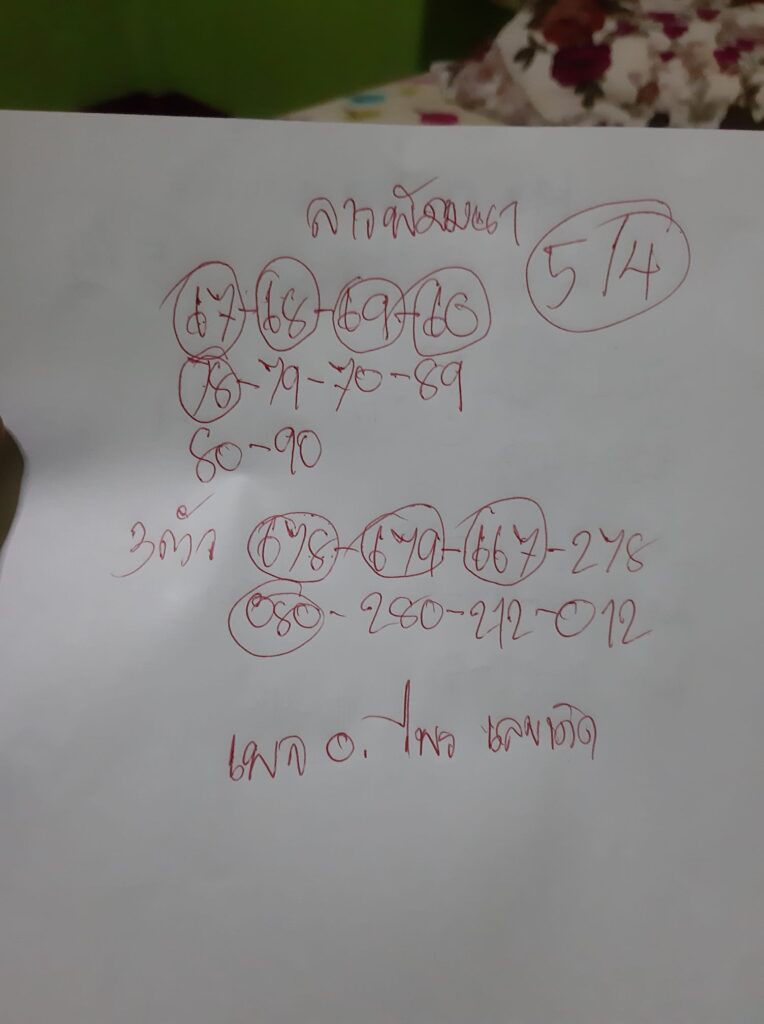 ลาวพัฒนา 5/4
67-68-69-60
78-79-70-89
80-90
3ตัว 678-679-667-278
080-280-212-012
เพจ อ. ไพร เลขเด็ด